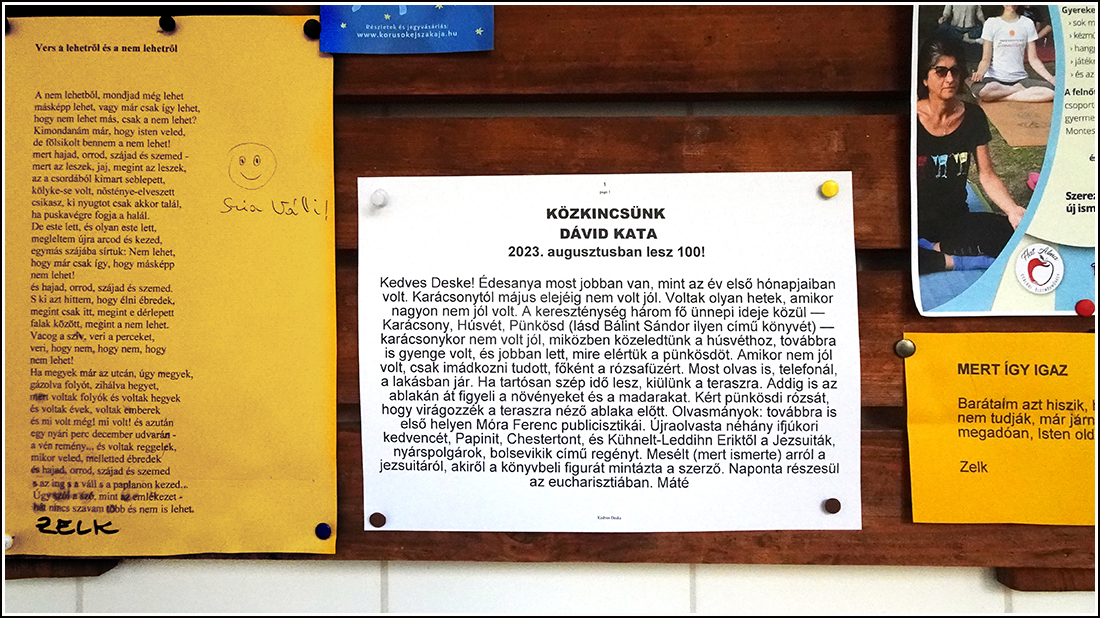 Vers a lehetről és a nem lehetről
A nem lehetből, mondjad még lehet
másképp lehet, vagy már csak így lehet,
hogy nem lehet más, csak a nem lehet?
Kimondanám már, hogy isten veled,
de fölsikolt bennem a nem lehet!
mert hajad, orrod, szájad és szemed -
mert az leszek, jaj, megint az leszek,
az a csordából kimart seblepett,
kölyke-se volt, nősténye-elveszett
csikasz, ki nyugtot csak akkor talál,
ha puskavégre fogja a halál.
De este lett, és olyan este lett,
megleltem újra arcod és kezed,
egymás szájába sírtuk: Nem lehet,
hogy már csak így, hogy másképp
nem lehet!
és hajad, orrod, szájad és szemed.
S ki azt hittem, hogy élni ébredek,
megint csak itt, megint e dérlepett
falak között, megint a nem lehet.
Vacog a szív, veri a perceket,
veri, hogy nem, hogy nem, hogy
nem lehet!
Ha megyek már az utcán, úgy megyek,
gázolva folyót, zihálva hegyet,
mert voltak folyók és voltak hegyek
és voltak évek, voltak emberek
és mi volt még! mi volt! és azután
egy nyári perc december udvarán -
a vén remény... és voltak reggelek,
mikor veled, melletted ébredek
és hajad, orrod, szájad és szemed
s az ing s a váll s a paplanon kezed...
Úgy szól a szó, mint az emlékezet -
hát nincs szavam több és nem is lehet.
ZELK
Szia Váli!
Részletek és jegyvásárlás:
www.korusokejszakaja.hu
1
page 1
KÖZKINCSÜNK
DÁVID KATA
2023. augusztusban lesz 100!
Kedves Deske! Édesanya most jobban van, mint az év első hónapjaiban
volt. Karácsonytól május elejéig nem volt jól. Voltak olyan hetek, amikor
nagyon nem jól volt. A kereszténység három fő ünnepi ideje közül —
Karácsony, Húsvét, Pünkösd (lásd Bálint Sándor ilyen című könyvét) —
karácsonykor nem volt jól, miközben közeledtünk a húsvéthoz, továbbra
is gyenge volt, és jobban lett, mire elértük a pünkösdöt. Amikor nem jól
volt, csak imádkozni tudott, főként a rózsafüzért. Most olvas is, telefonál,
a lakásban jár. Ha tartósan szép idő lesz, kiülünk a teraszra. Addig is az
ablakán át figyeli a növényeket és a madarakat. Kért pünkösdi rózsát,
hogy virágozzék a teraszra néző ablaka előtt. Olvasmányok: továbbra is
első helyen Móra Ferenc publicisztikái. Újraolvasta néhány ifjúkori
kedvencét, Papinit, Chestertont, és Kühnelt-Leddihn Eriktől a Jezsuiták,
nyárspolgárok, bolsevikik című regényt. Mesélt (mert ismerte) arról a
jezsuitáról, akiről a könyvbeli figurát mintázta a szerző. Naponta részesül
az eucharisztiában. Máté
Kedves Deske
Gyereke
› sok m
› kézmű
› hang
› játék
› és az
A felnőt
csoport
gyerme
Montes
é
Szerez
új ism
Flat Alma
MERT ÍGY IGAZ
Barátaim azt hiszik, h
nem tudják, már járn
megadóan, Isten old
Zelk